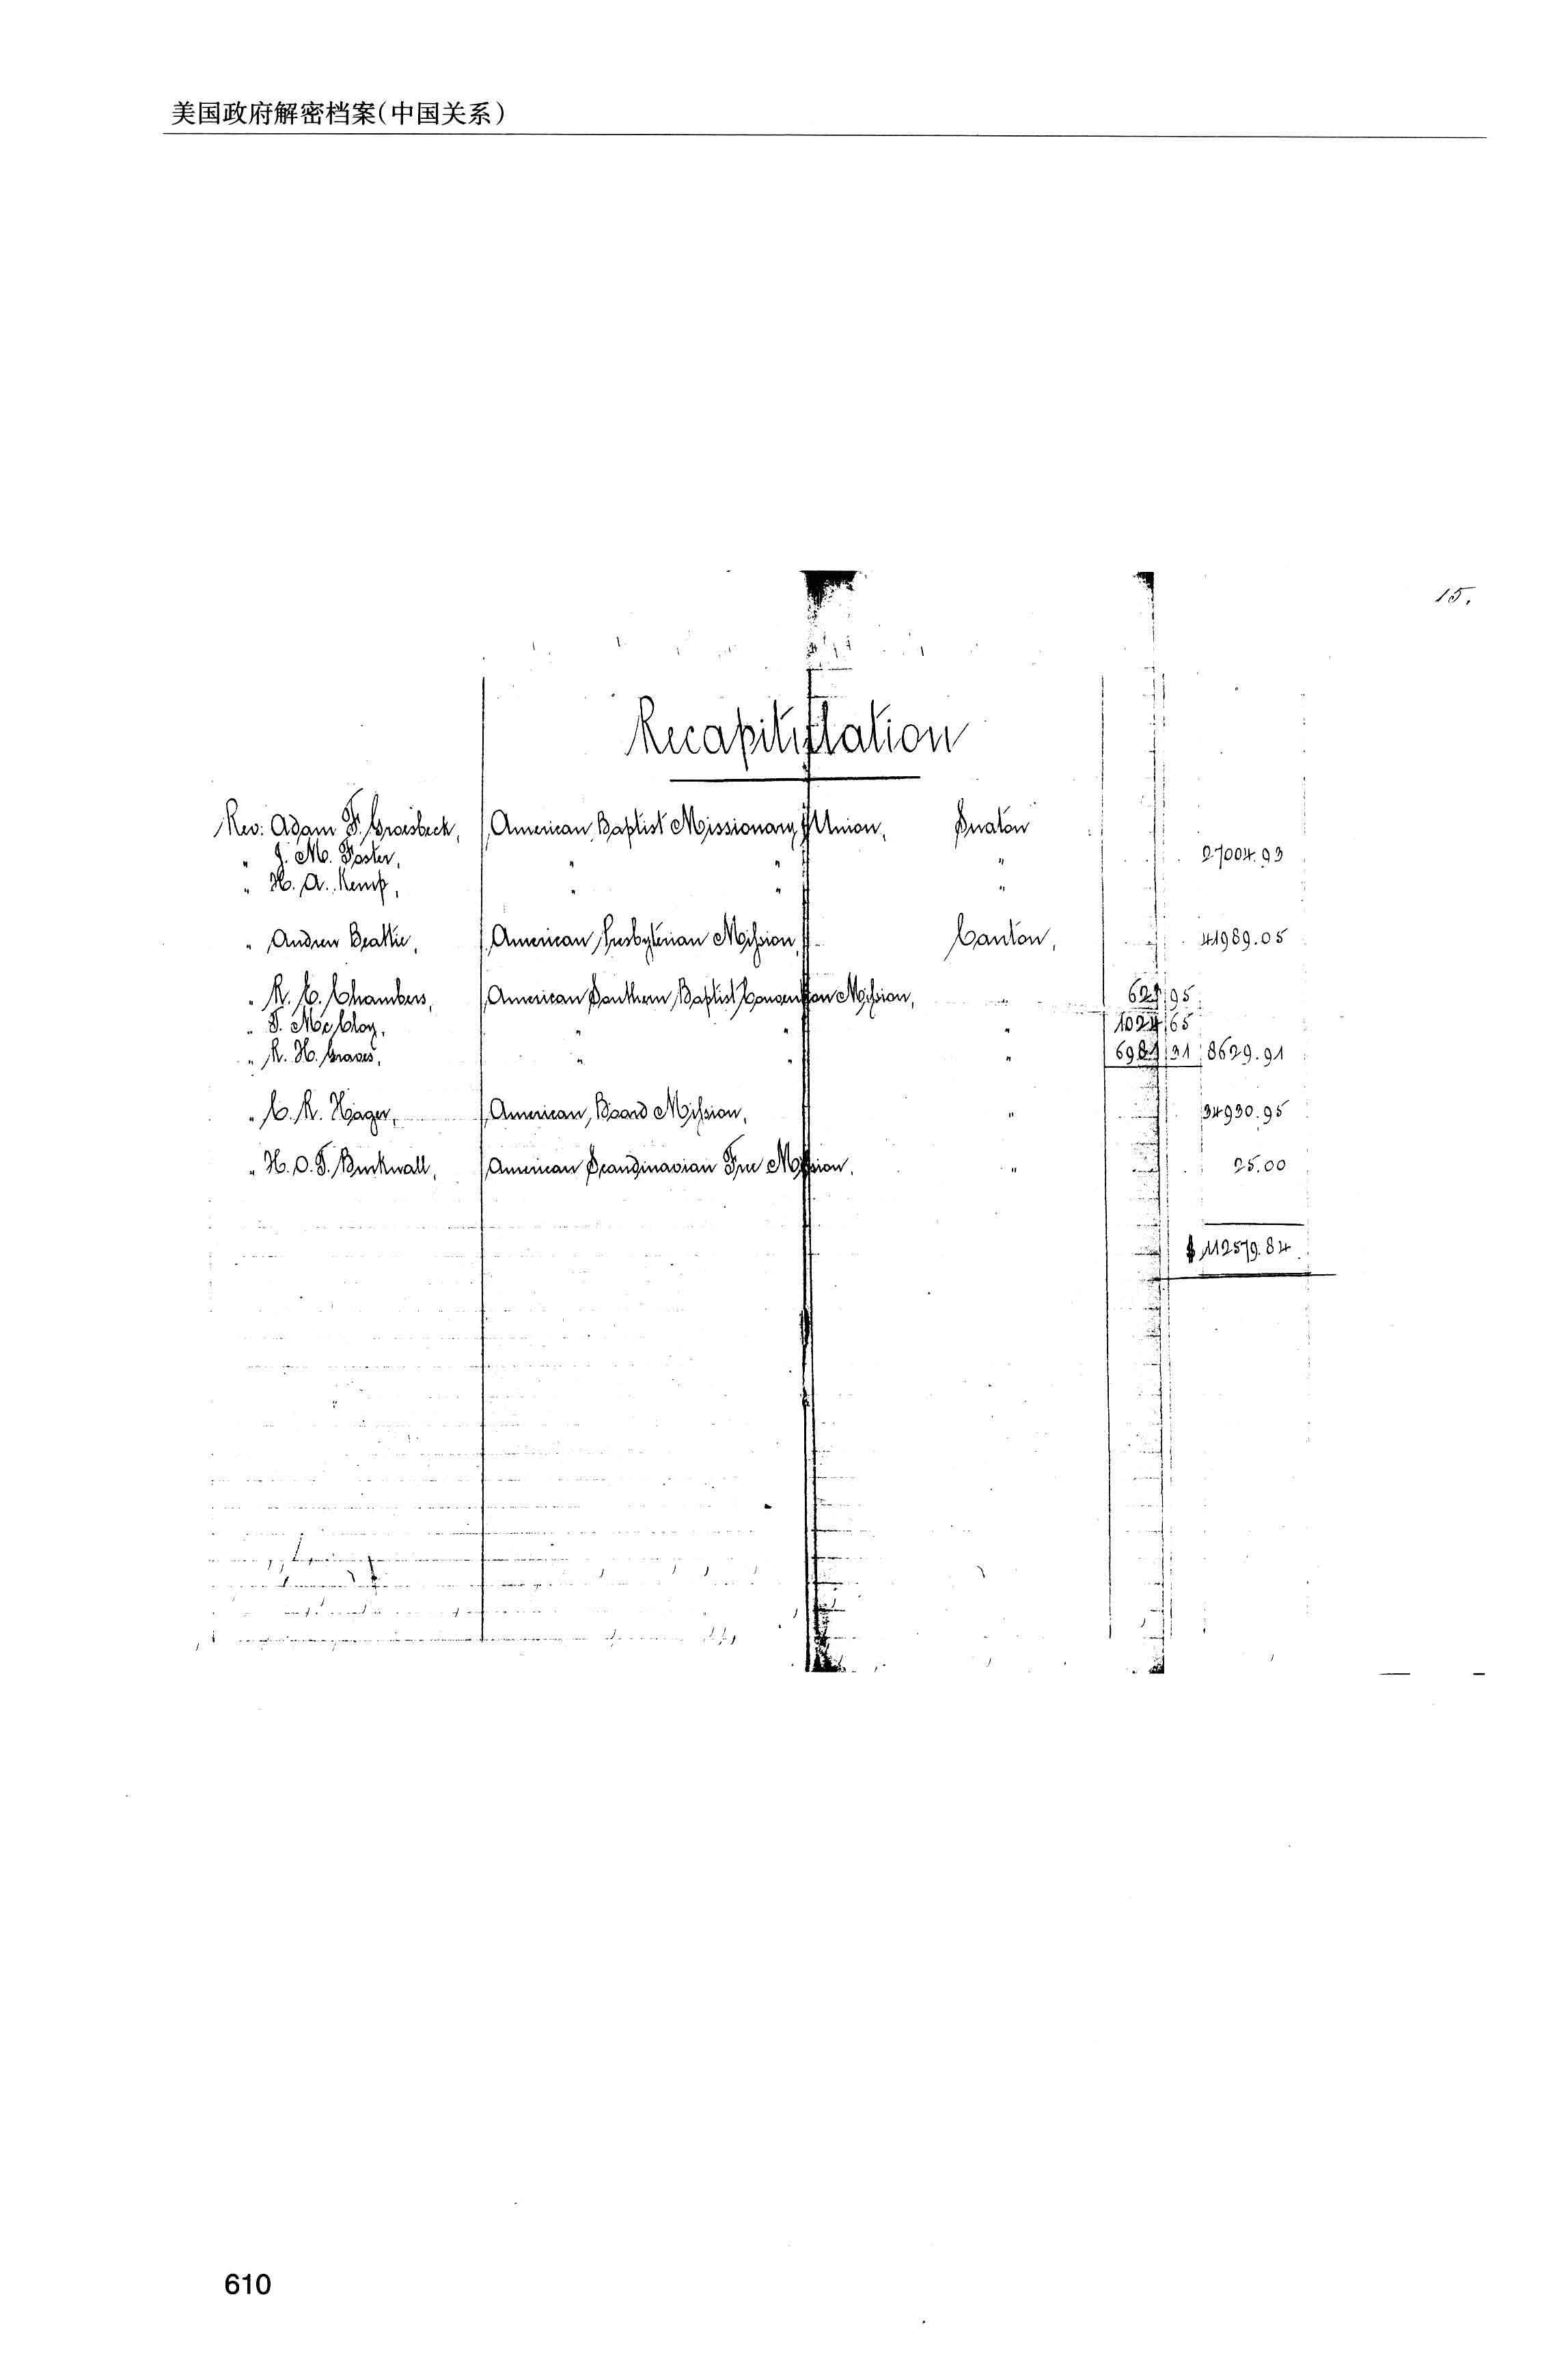 美国政府解密档案(中国关系)
15.
Recapitulation
Rev: Adam F. Groesbeck, American Baptist Missionary Union, Swatow
" J. M. Foster, " " " 27004.93
" H. A. Kemp, " " "
" Andrew Beattie, American Presbyterian Mission, Canton, 41989.05
" R. E. Chambers, American Southern Baptist Convention Mission, "
" T. McCloy, " " " 1024 65
" R. H. Graves, " " " 8629.91
" C. R. Hager, American Board Mission, " 34930.95
" H. O. T. Burkwall, American Scandinavian Free Mission, " 25.00
$ 112579.84
610